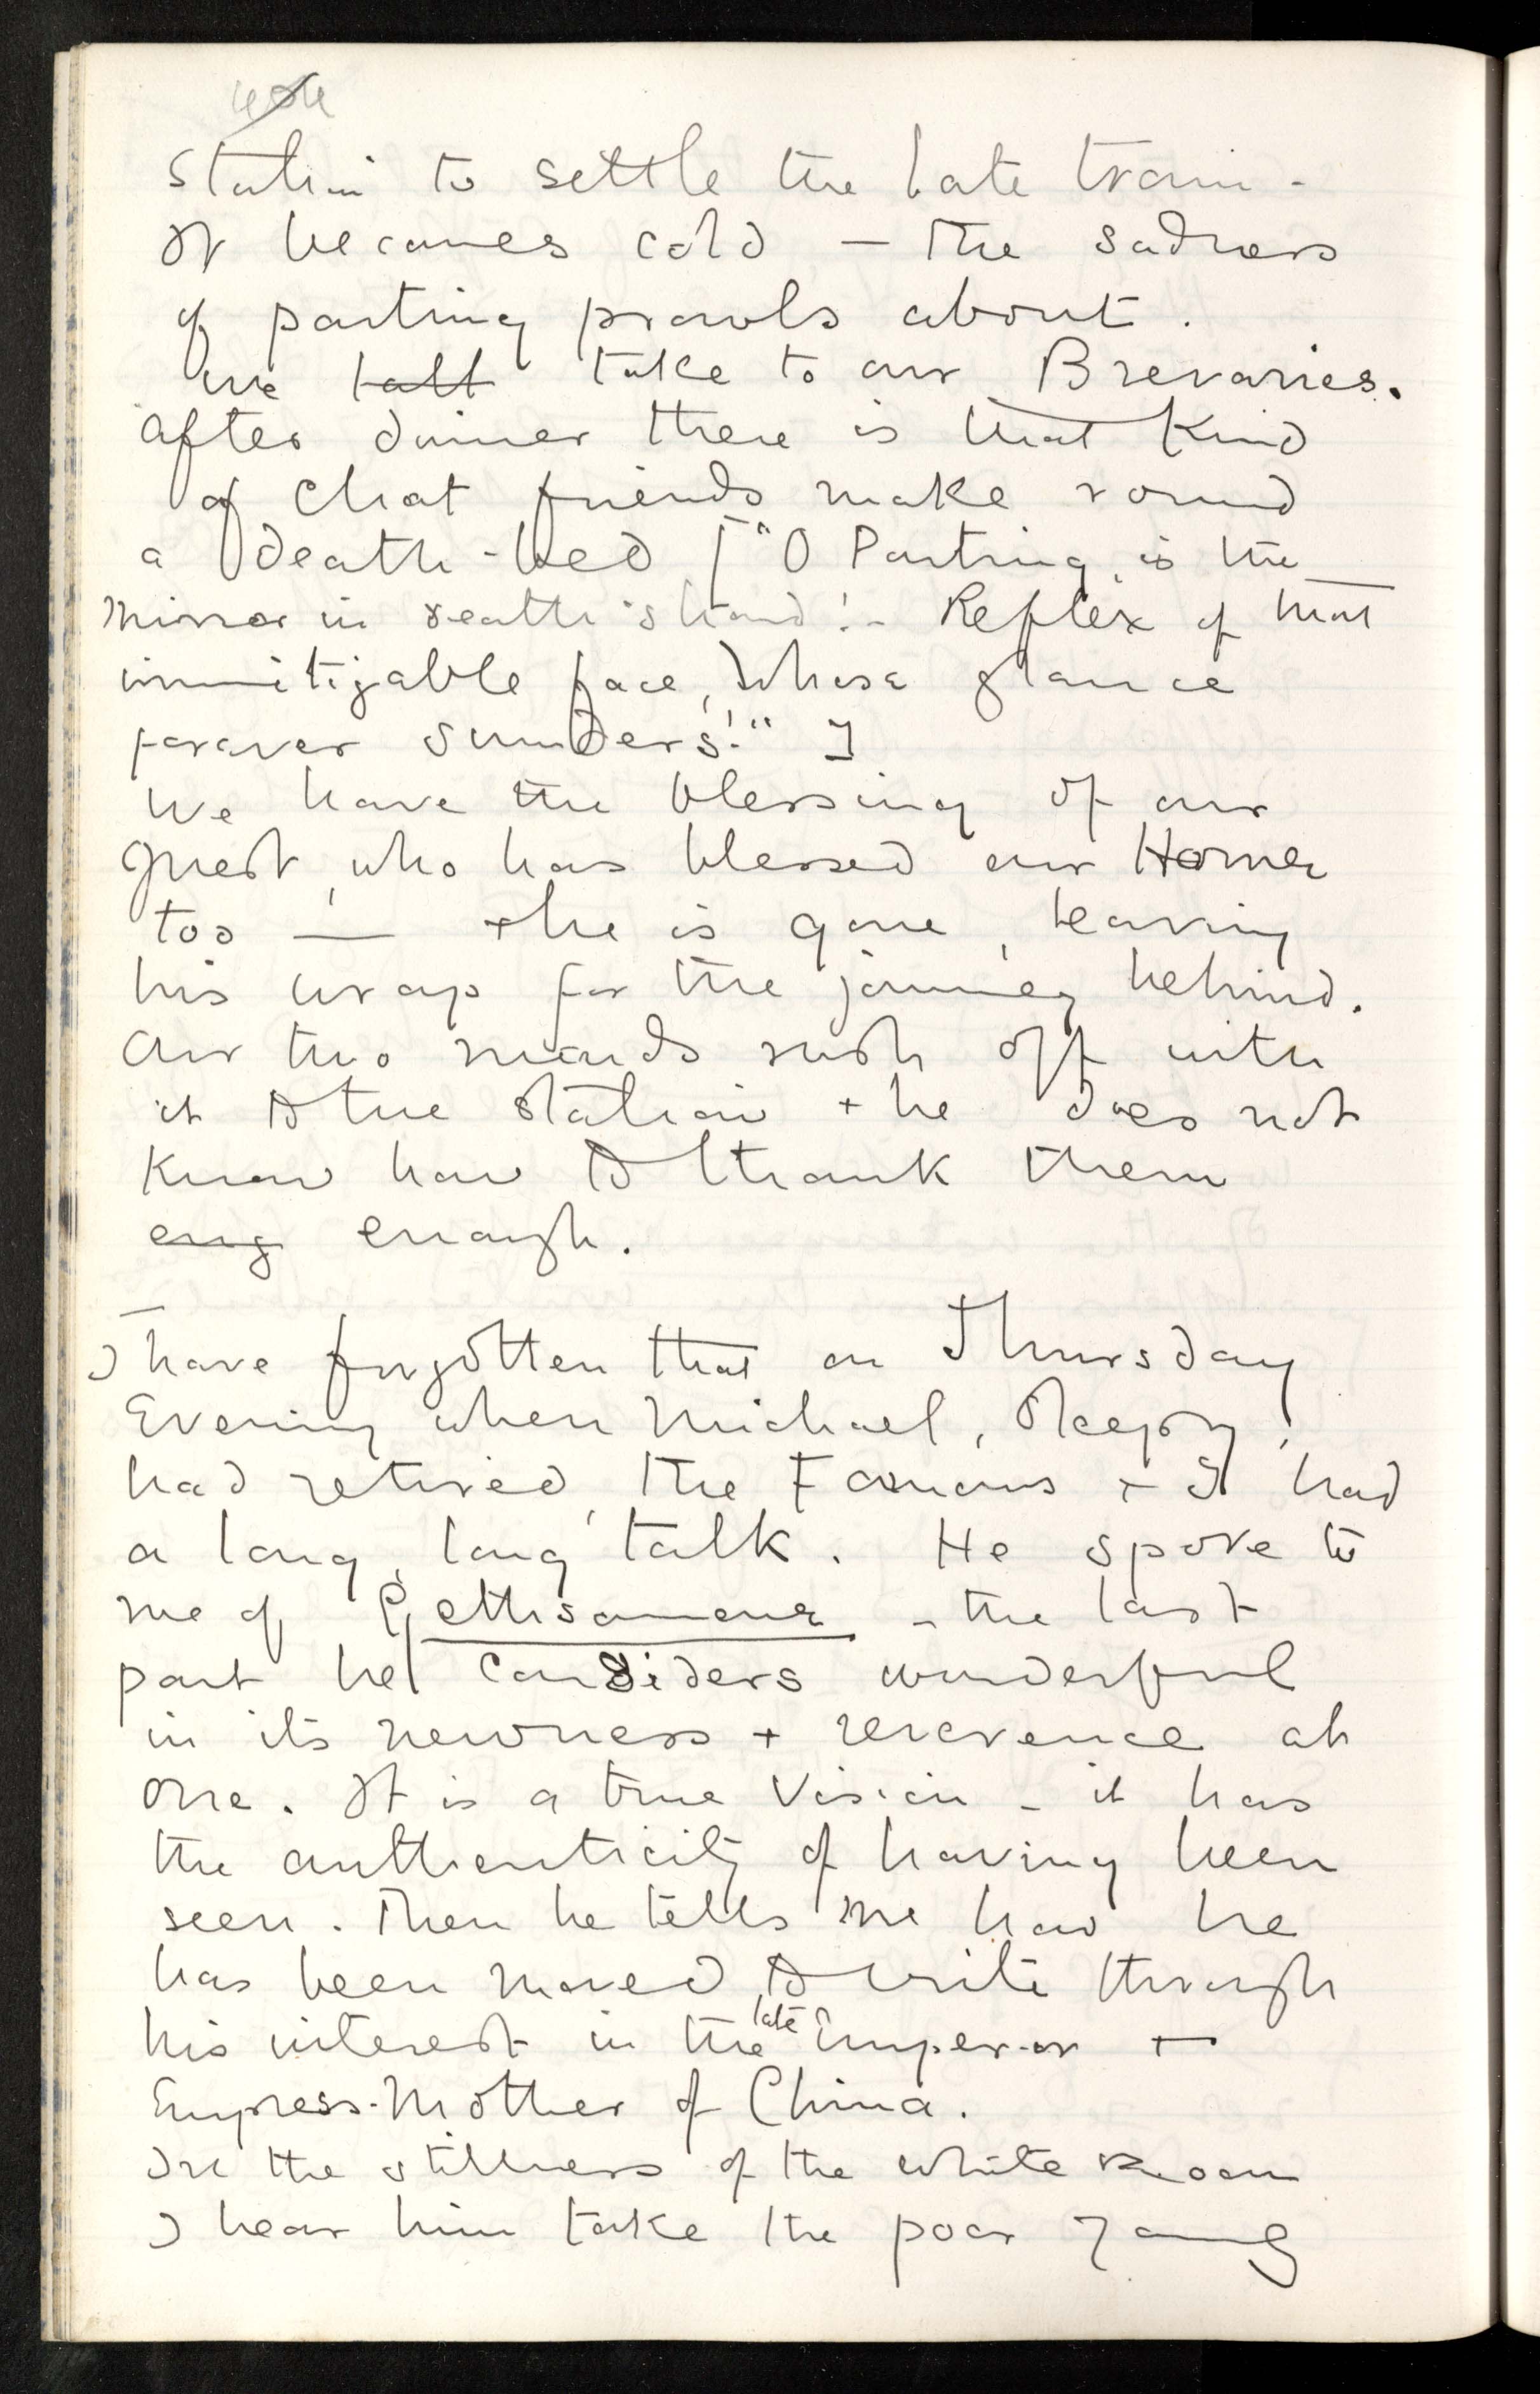 station to settle the late train -
It becomes cold — the sadness
of parting prowls about.
We talk take to our Brevaries.
After dinner there is that kind
of chat friends make round
a death-bed ["O Parting is the
mirror in death's hand! - Reflex of that
immitigable face, Whose glance
forever sunders!"]
We have the blessing of our
guest, who has blessed our Home
too — + he is gone, leaving
his wrap for the journey behind.
Our two maids rush off with
it to the station + he does not
know how to thank them
eng enough.
I have forgotten that on Thursday
Evening when Michael, sleepy,
had retired, the Famous + I had
a long, long talk. He spoke to
me of Gethsamene - the last
part he considers wonderful
in its newness + reverence at
one. It is a true Vision - it has
the authenticity of having been
seen. Then he tells me how he
has been moved to write through
his interest in the late Emperor +
Empress-Mother of China.
In the stillness of the white room
I hear him take the poor young